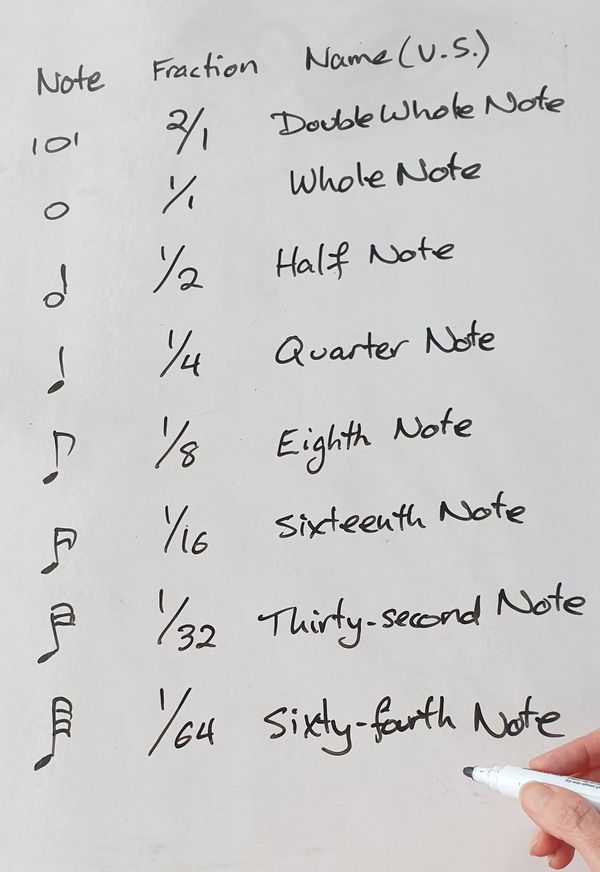 Note Fraction Name (U.S.)
2/1 Double Whole Note
1/1 Whole Note
1/2 Half Note
1/4 Quarter Note
1/8 Eighth Note
1/16 Sixteenth Note
1/32 Thirty-second Note
1/64 Sixty-fourth Note